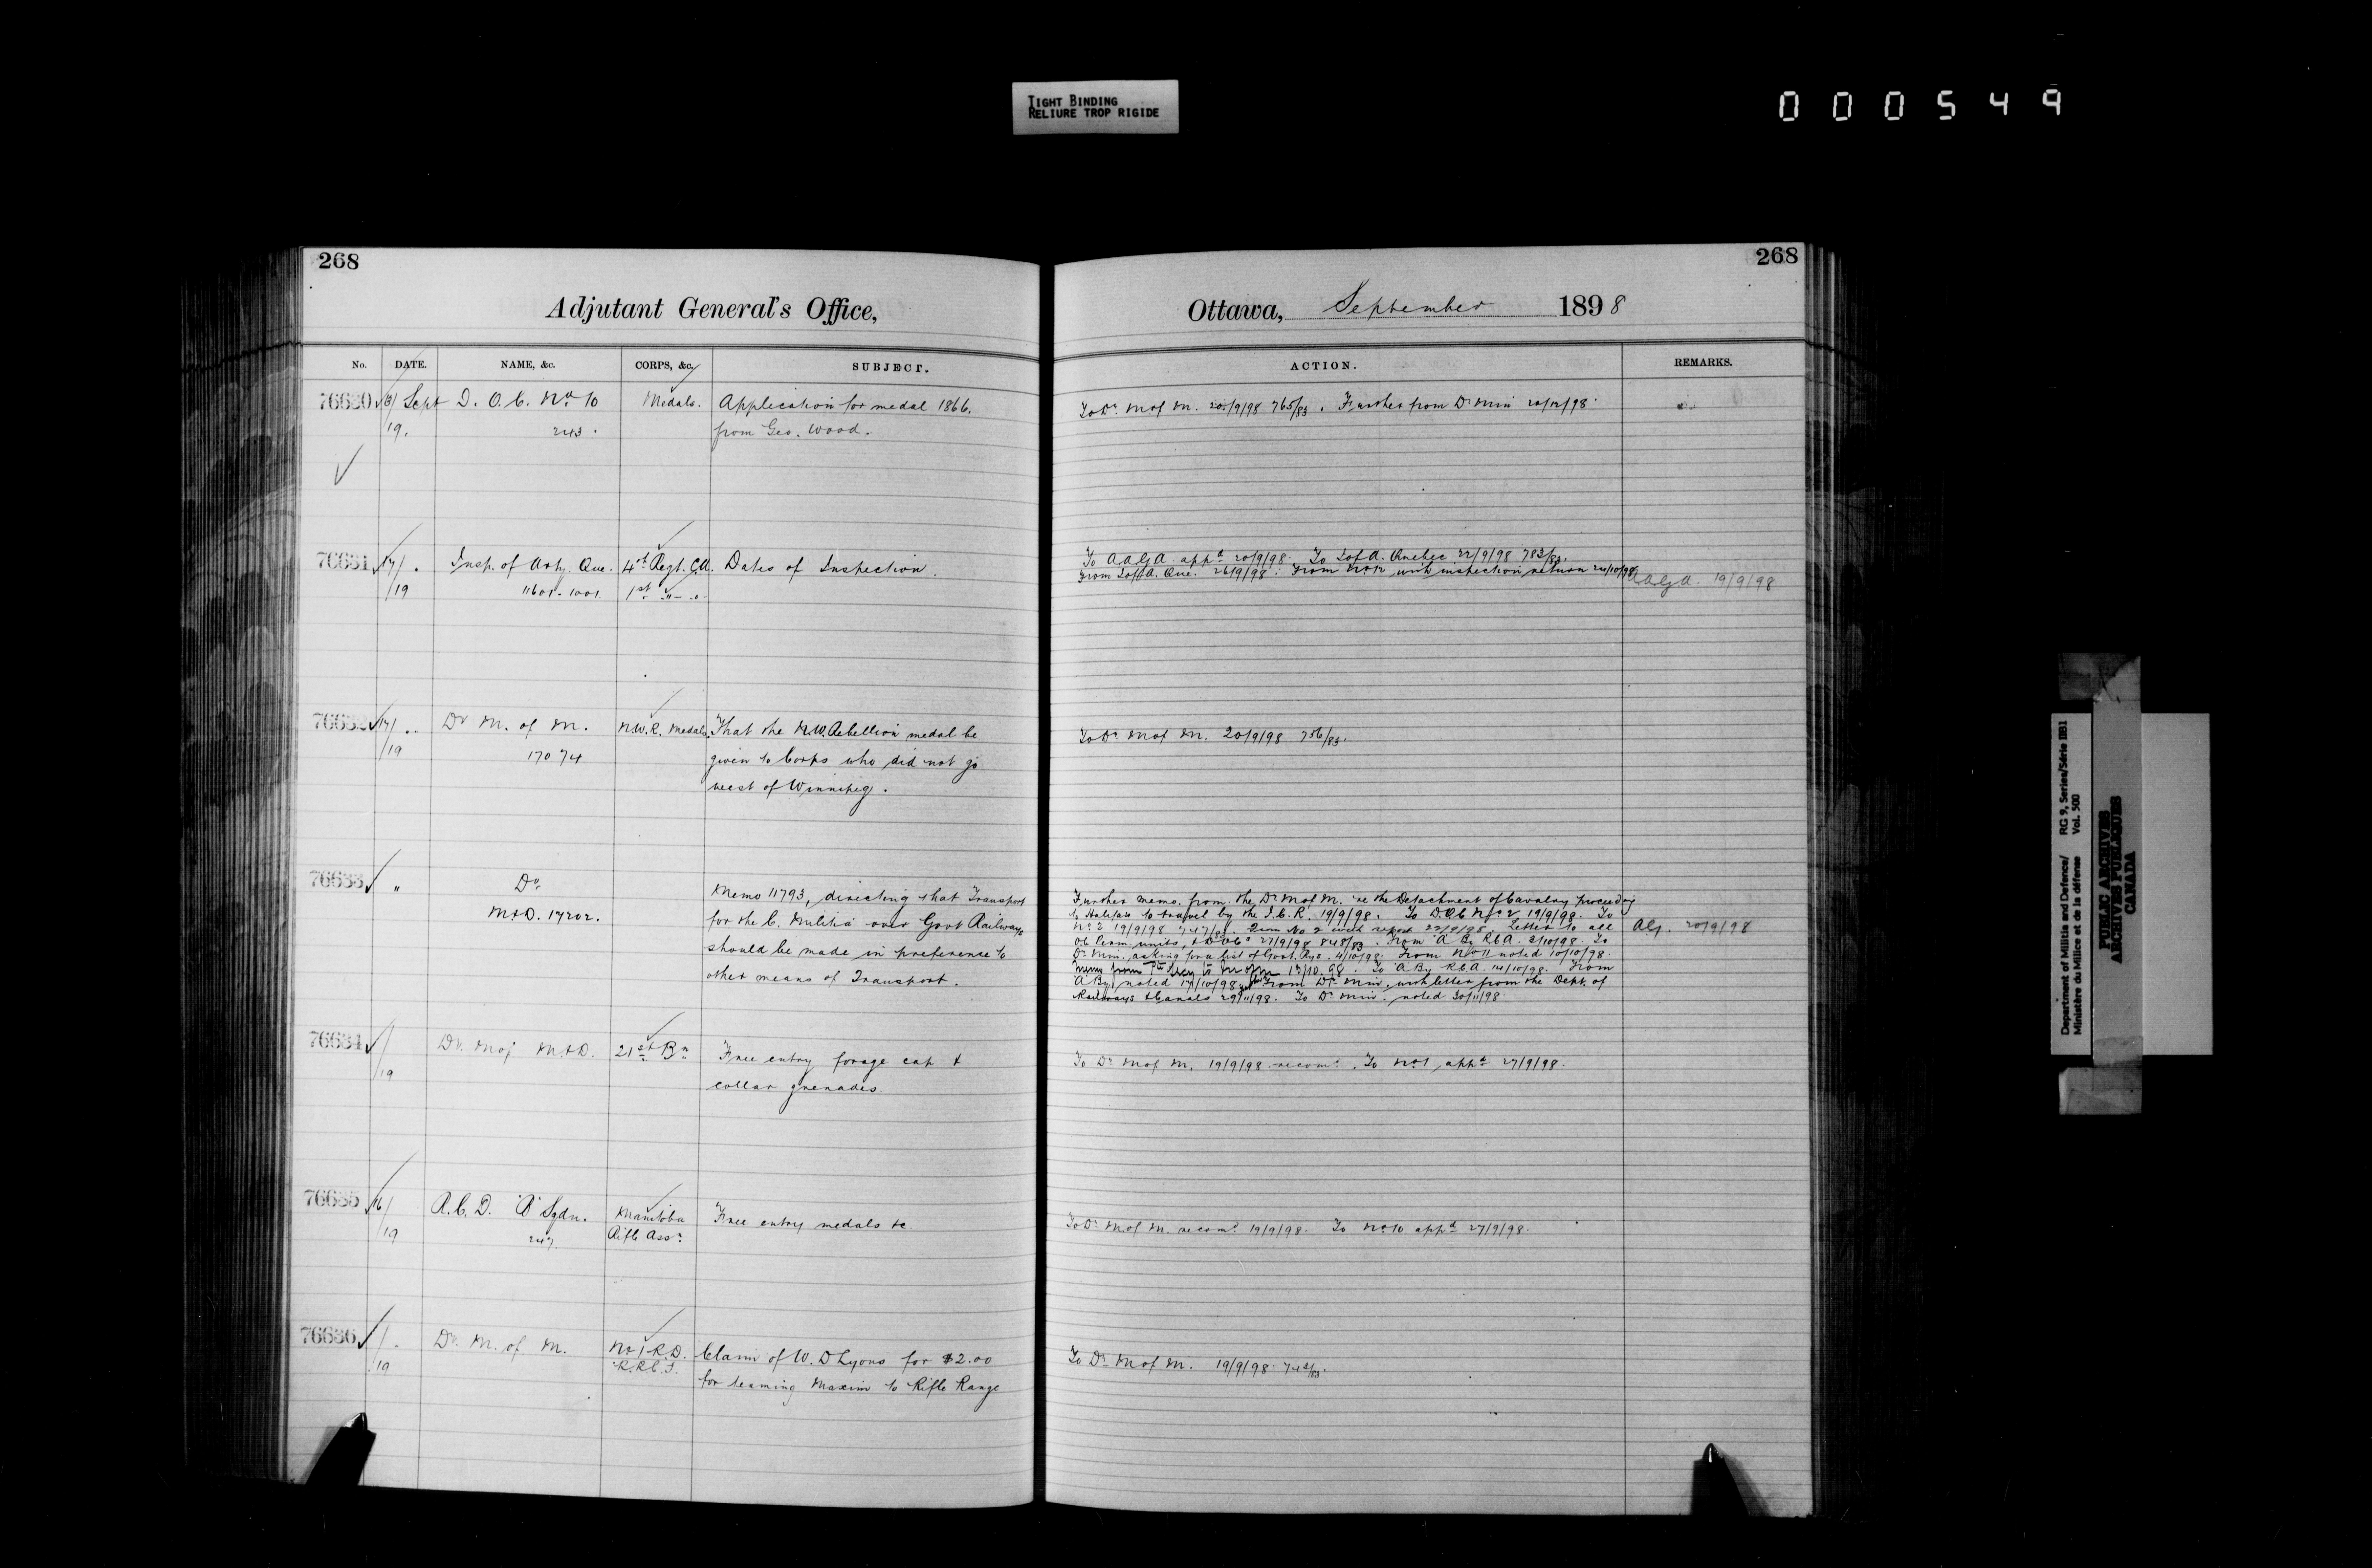 TIGHT BINDING
RELIURE TROP RIGIDE
000549
268
Adjutant General's Office,
No. DATE. NAME, &c. CORPS, &c. SUBJECT.
76630 Sept D. O. C. No 10 Medals. Application for medal 1866.
19. 243. from Geo. Wood.
76631 17/ Insp. of Arty. Que. 4th Regt. C.A. Dates of Inspection.
/19 11601-1001. 1st " "
76632 17/ " Dy M. of M. N.W.R. Medals. That the N.W. Rebellion medal be
/19 17074 given to Corps who did not go
west of Winnipeg.
76633 " Do. Memo 11793, directing that Transport
M&D. 17202. for the C. Militia over Govt Railways
should be made in preference to
other means of Transport.
76634 Dy. M of M&D. 21st Bn Free entry forage cap &
/19 collar grenades.
76635 16/ A.C.D. 'A' Sqdn. Manitoba Free entry medals &c
/19 247. Rifle Assn.
76636 / Dy. M. of M. No 1 R.D. Claim of W. D Lyons for $2.00
19 R.R.C.I. for teaming Maxim to Rifle Range
268
Ottawa, September 1898
ACTION. REMARKS.
To Dy. M of M. 20/9/98 765/83. Further from Dy Min 20/12/98.
To A.A.G.A. appd 20/9/98. To I of A. Quebec 22/9/98 783/83.
From I of A. Que. 26/9/98. From with inspection return 24/10/98. A.A.G.A. 19/9/98
To Dy. M of M. 20/9/98 756/83.
Further memo. from the Dy M of M. re the Detachment of Cavalry proceeding
to Halifax to travel by the I.C.R. 19/9/98. To D.O.C No 2 19/9/98. To
No 2 19/9/98 747/83. From No 2 with report 22/9/98. Letter to all AG. 20/9/98
OC Perm. units, & DOCs 27/9/98 848/83. From 'A' By R.C.A. 2/10/98. To
Dy Min. asking for a list of Govt. Rys. 4/10/98. From No 11 noted 10/10/98.
Memo from 13/10/98. To 'A' By R.C.A. 14/10/98. From
A By noted 17/10/98 From Dy. Min. with letter from the Dept. of
Railways & Canals 29/11/98. To Dy Min. noted 30/11/98.
To Dy M of M. 19/9/98 recomd. To No 1 appd 27/9/98.
To Dy M of M. recomd 19/9/98. To No 10 appd 27/9/98.
To Dy M of M. 19/9/98 742/83.
Department of Militia and Defence/ RG 9, Series/Série IIB1
Ministère du Milice et de la défense Vol. 500
PUBLIC ARCHIVES
ARCHIVES PUBLIQUES
CANADA